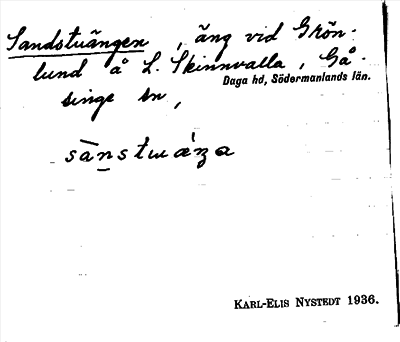 Sandstuängen, äng vid Grön-
lund å L. Skinnvalla, Gå-
singe sn,
Daga hd, Södermanlands län.
KARL-ELIS NYSTEDT 1936.